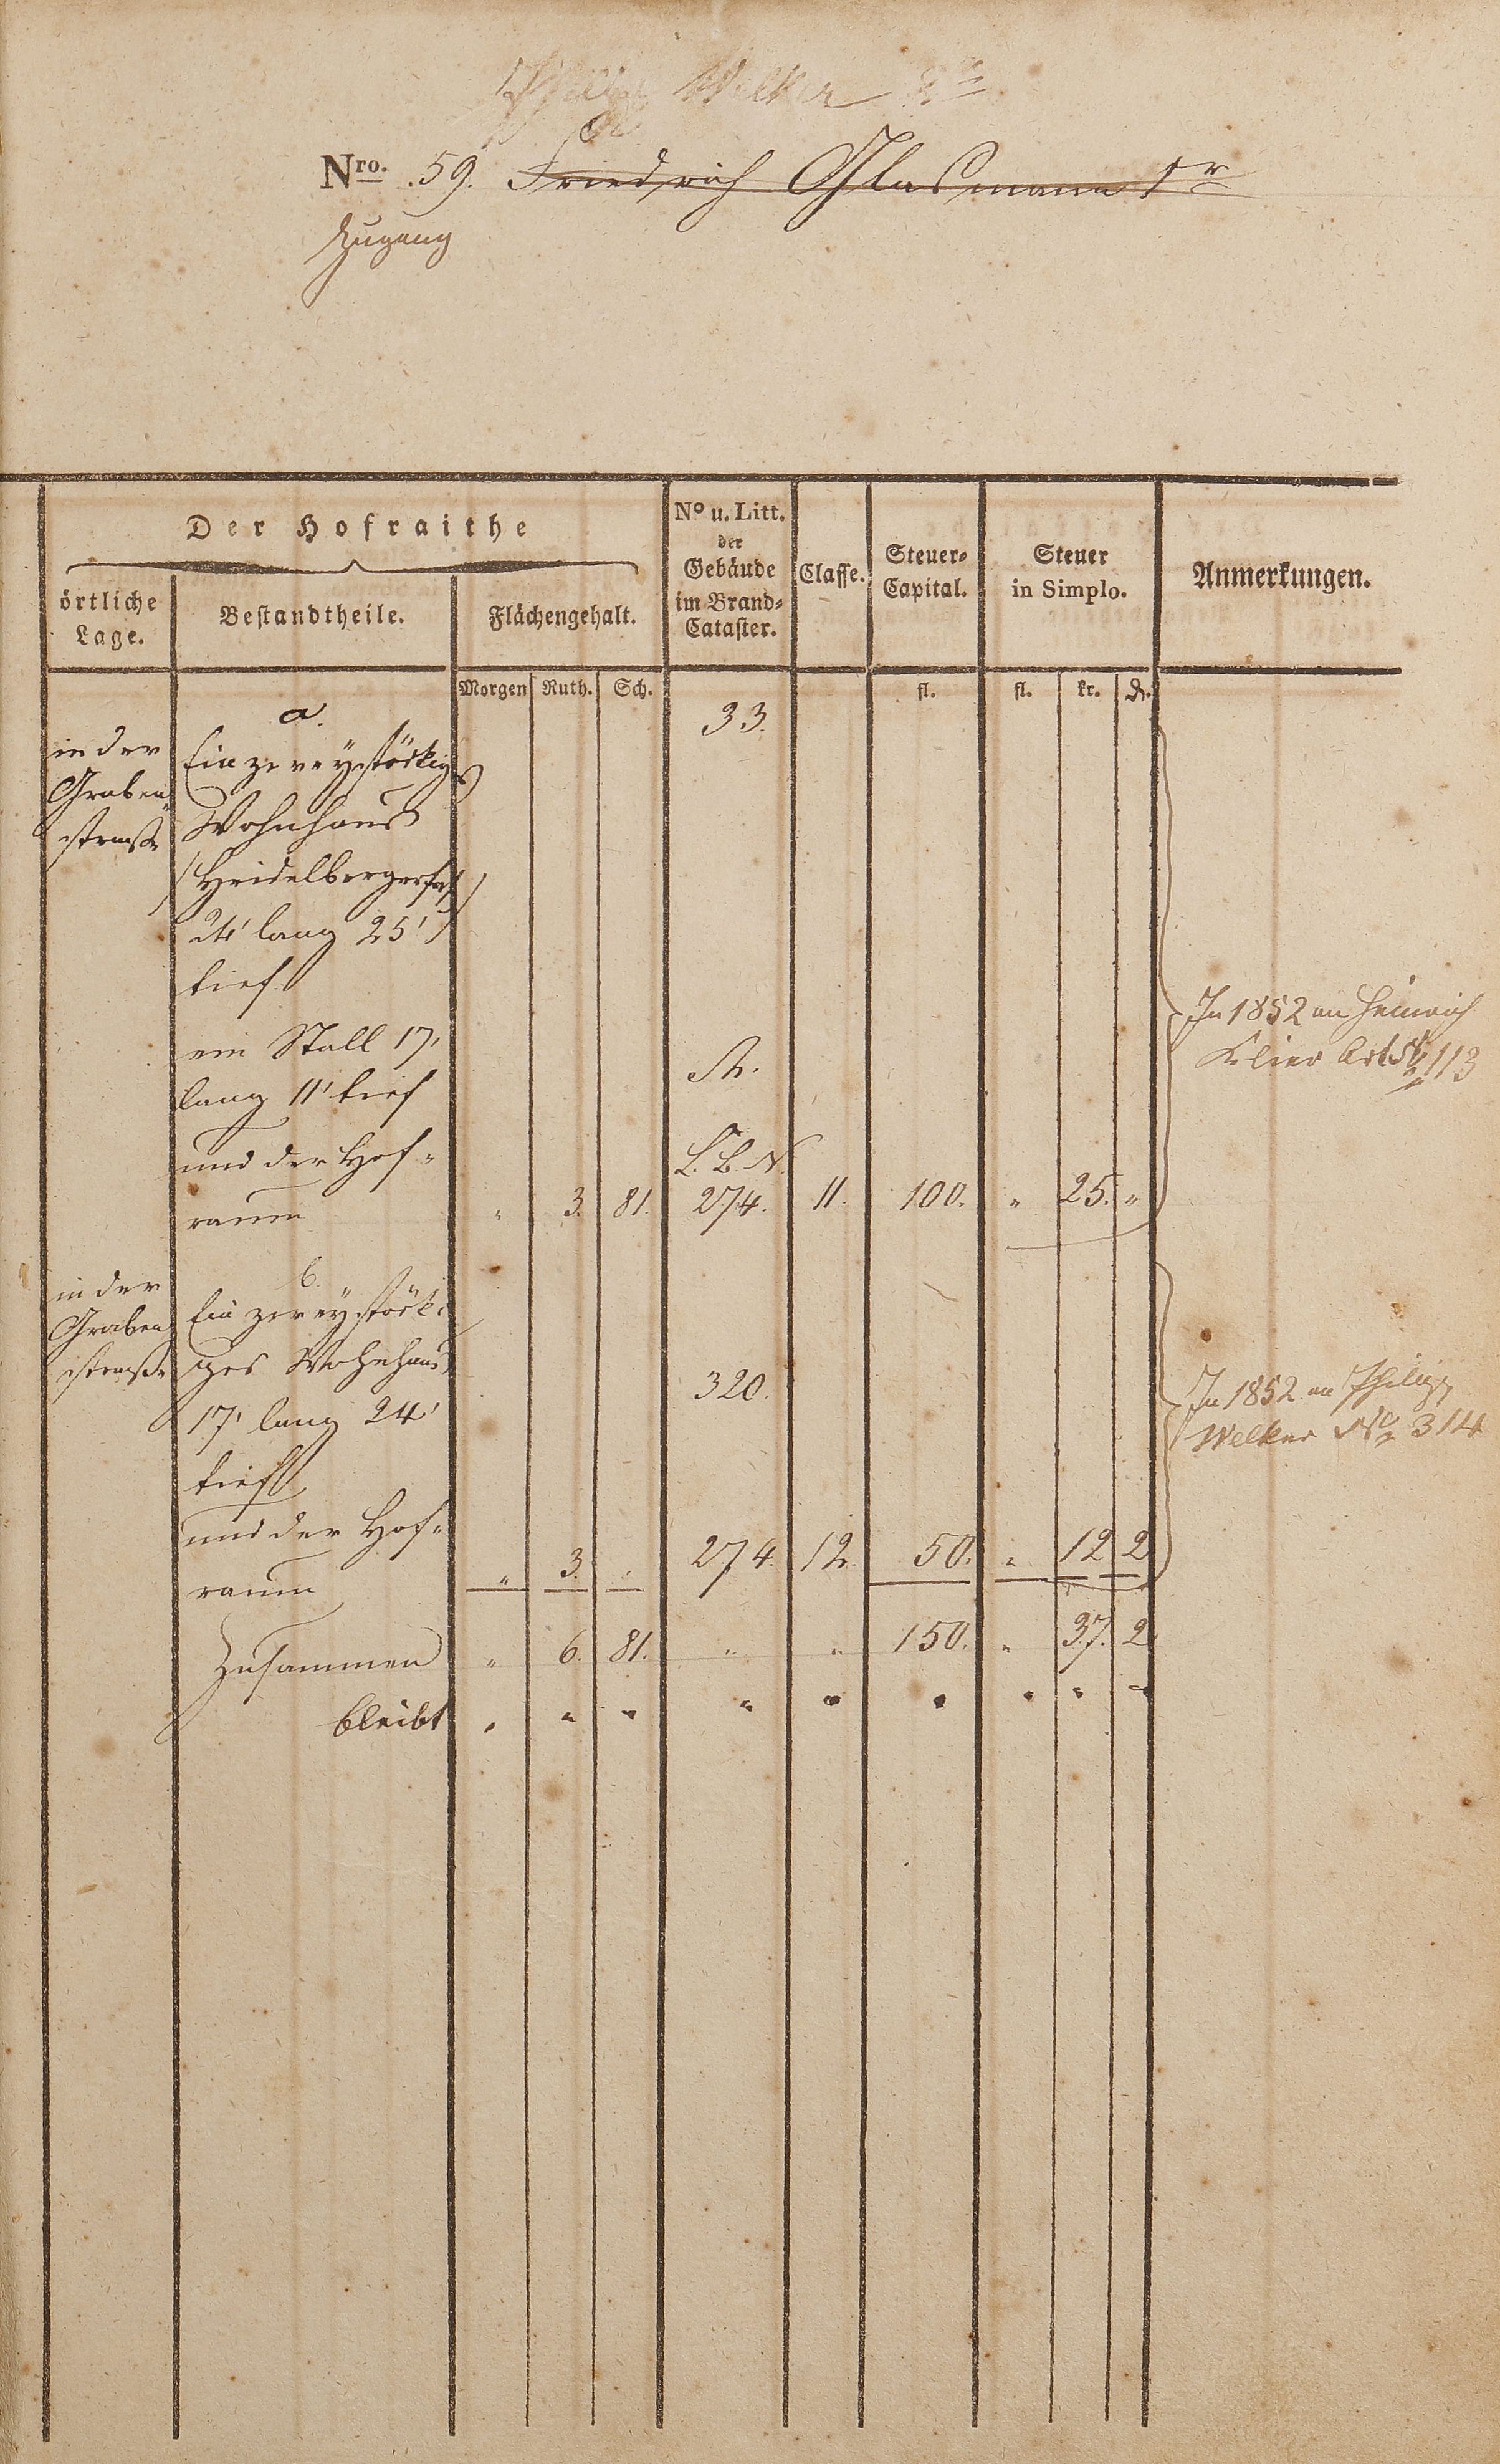 Philipp Welker 2r
Nro. 59. Friedrich Glasmann 1r
Zugang
Der Hofraithe
örtliche
Lage.
Bestandtheile.
Flächengehalt.
No u. Litt.
der
Gebäude
im Brand-
Cataster.
Classe.
Steuer-
Capital.
Steuer
in Simplo.
Anmerkungen.
Morgen Ruth. Sch. fl. fl. kr. d.
a. 33.
in der Ein zweystöckiges
Graben Wohnhaus
straße
24' lang 25'
tief.
In 1852 an Heinrich
Klier 113
ein Stall 17' St.
lang 11' tief
und der Hof- L. B. N.
raum " 3. 81. 274. 11. 100. " 25. "
b.
in der Ein zweystöcki
Graben ges Wohnhaus 320.
straße 17' lang 24'
tief
In 1852 an Philipp
Welker No 314
und der Hof-
raum " 3. " 274. 12. 50. " 12 2
Zusammen " 6. 81. " " 150. " 37. 2
bleibt " " " " " " " " "